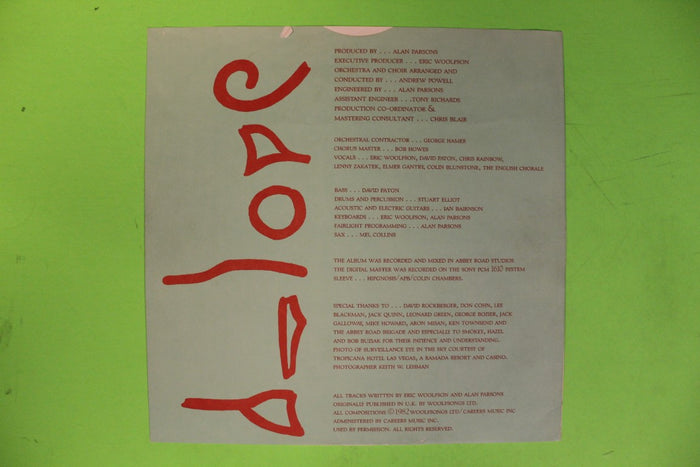 PRODUCED BY . . . ALAN PARSONS
EXECUTIVE PRODUCER . . . ERIC WOOLFSON
ORCHESTRA AND CHOIR ARRANGED AND
CONDUCTED BY . . . ANDREW POWELL
ENGINEERED BY . . . ALAN PARSONS
ASSISTANT ENGINEER . . . TONY RICHARDS
PRODUCTION CO-ORDINATOR &
MASTERING CONSULTANT . . . CHRIS BLAIR
ORCHESTRAL CONTRACTOR . . . GEORGE HAMER
CHORUS MASTER . . . BOB HOWES
VOCALS . . . ERIC WOOLFSON, DAVID PATON, CHRIS RAINBOW,
LENNY ZAKATEK, ELMER GANTRY, COLIN BLUNSTONE, THE ENGLISH CHORALE
BASS . . . DAVID PATON
DRUMS AND PERCUSSION . . . STUART ELLIOT
ACOUSTIC AND ELECTRIC GUITARS . . . IAN BAIRNSON
KEYBOARDS . . . ERIC WOOLFSON, ALAN PARSONS
FAIRLIGHT PROGRAMMING . . . ALAN PARSONS
SAX . . . MEL COLLINS
THE ALBUM WAS RECORDED AND MIXED IN ABBEY ROAD STUDIOS
THE DIGITAL MASTER WAS RECORDED ON THE SONY PCM 1610 SYSTEM
SLEEVE . . . HIPGNOSIS/APB/COLIN CHAMBERS.
SPECIAL THANKS TO . . . DAVID ROCKBERGER, DON COHN, LES
BLACKMAN, JACK QUINN, LEONARD GREEN, GEORGE BODER, JACK
GALLOWSE, MIKE HOWARD, ARON MISAN, KEN TOWNSEND AND
THE ABBEY ROAD BRIGADE AND ESPECIALLY TO SMOKEY, HAZEL
AND BOB BUZIAK FOR THEIR PATIENCE AND UNDERSTANDING.
PHOTO OF SURVEILLANCE EYE IN THE SKY COURTESY OF
TROPICANA HOTEL LAS VEGAS, A RAMADA RESORT AND CASINO.
PHOTOGRAPHER KEITH W. LEHMAN
ALL TRACKS WRITTEN BY ERIC WOOLFSON AND ALAN PARSONS
ORIGINALLY PUBLISHED IN U.K. BY WOOLFSONGS LTD.
ALL COMPOSITIONS © 1982 WOOLFSONGS LTD/CAREERS MUSIC INC
ADMINISTERED BY CAREERS MUSIC INC.
USED BY PERMISSION. ALL RIGHTS RESERVED.